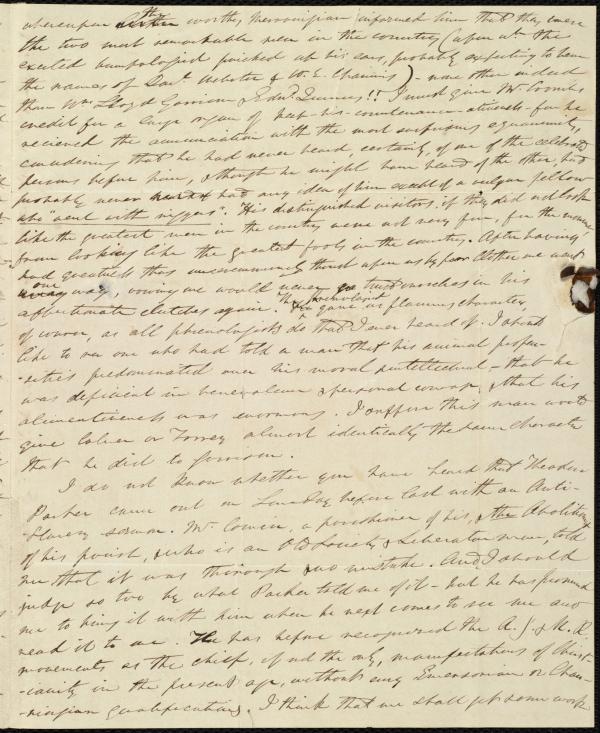 whereupon the worthy mesmerizer informed him that they were
the two most remarkable men in the country (upon wh. the
excited bumpologist pricked up his ears, probably expecting to hear
the names of Danl. Webster & W. E. Channing) - none other indeed
than Wm. Lloyd Garrison & Edmd. Quincy!! I must give Mr. Combs
credit for a large organ of keep-his-countenance-ativeness - for he
received the annunciation with the most surprising equanimity,
considering that he had never heard, certainly, of one of the celebrated
persons before him, & though he might have heard of the other, had
probably never had any idea of him except of a vulgar fellow
who "went with niggers". His distinguished visitors, if they did not look
like the greatest men in the country were not very far, for the moment
from looking like the greatest fools in the country. After having
had greatness thus unceremoniously thrust upon us by poor we went
our way, vowing we would never trust ourselves in his
affectionate clutches again. The phrenologist gave us flaming characters,
of course, as all phrenologists do that I ever heard of. I should
like to see one who had told a man that his animal propen-
-sities predominated over his moral & intellectual - that he
was deficient in benevolence & personal courage, & that his
alimentiveness was enormous. I suppose this man would
give Colver or Torrey almost identically the same character
that he did to Garrison.
I do not know whether you have heard that Theodore
Parker came out on Sunday before last with an Anti-
-Slavery sermon. Mr. Cowen, a parishioner of his, & the Abolitionist
of his parish, & who is an Old Society & Liberator man, told
me that it was thorough & no mistake. And I should
judge so too by what Parker told me of it - but he has promised
me to bring it with him when he next comes to see me and
read it to me. He has before recognized the A. S. & N. R.
movements, as the chief, if not the only, manifestations of Christ-
-ianity in the present age, without any Emersonian or Chan-
-ningian qualifications. I think that we shall get some work